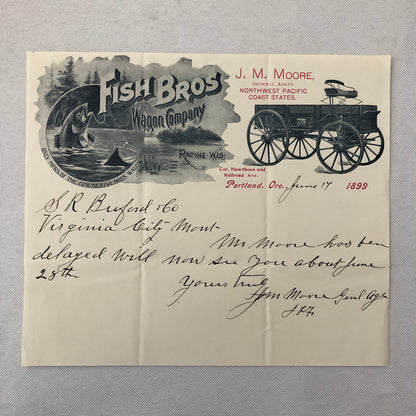 FISH BROS
Wagon Company
RACINE-WIS.
ONLY MAKERS OF THE GENUINE FISH BROS. WAGON
J. M. MOORE,
GENERAL AGENT
NORTHWEST PACIFIC
COAST STATES.
Cor. Hawthorn and
Railroad Ave.
Portland, Ore, June 17 1899
S R Buford & Co
Virginia City Mont
Mr Moore has ben
delayed will now see you about June
28th
Yours truly
J M Moore Genl Agt